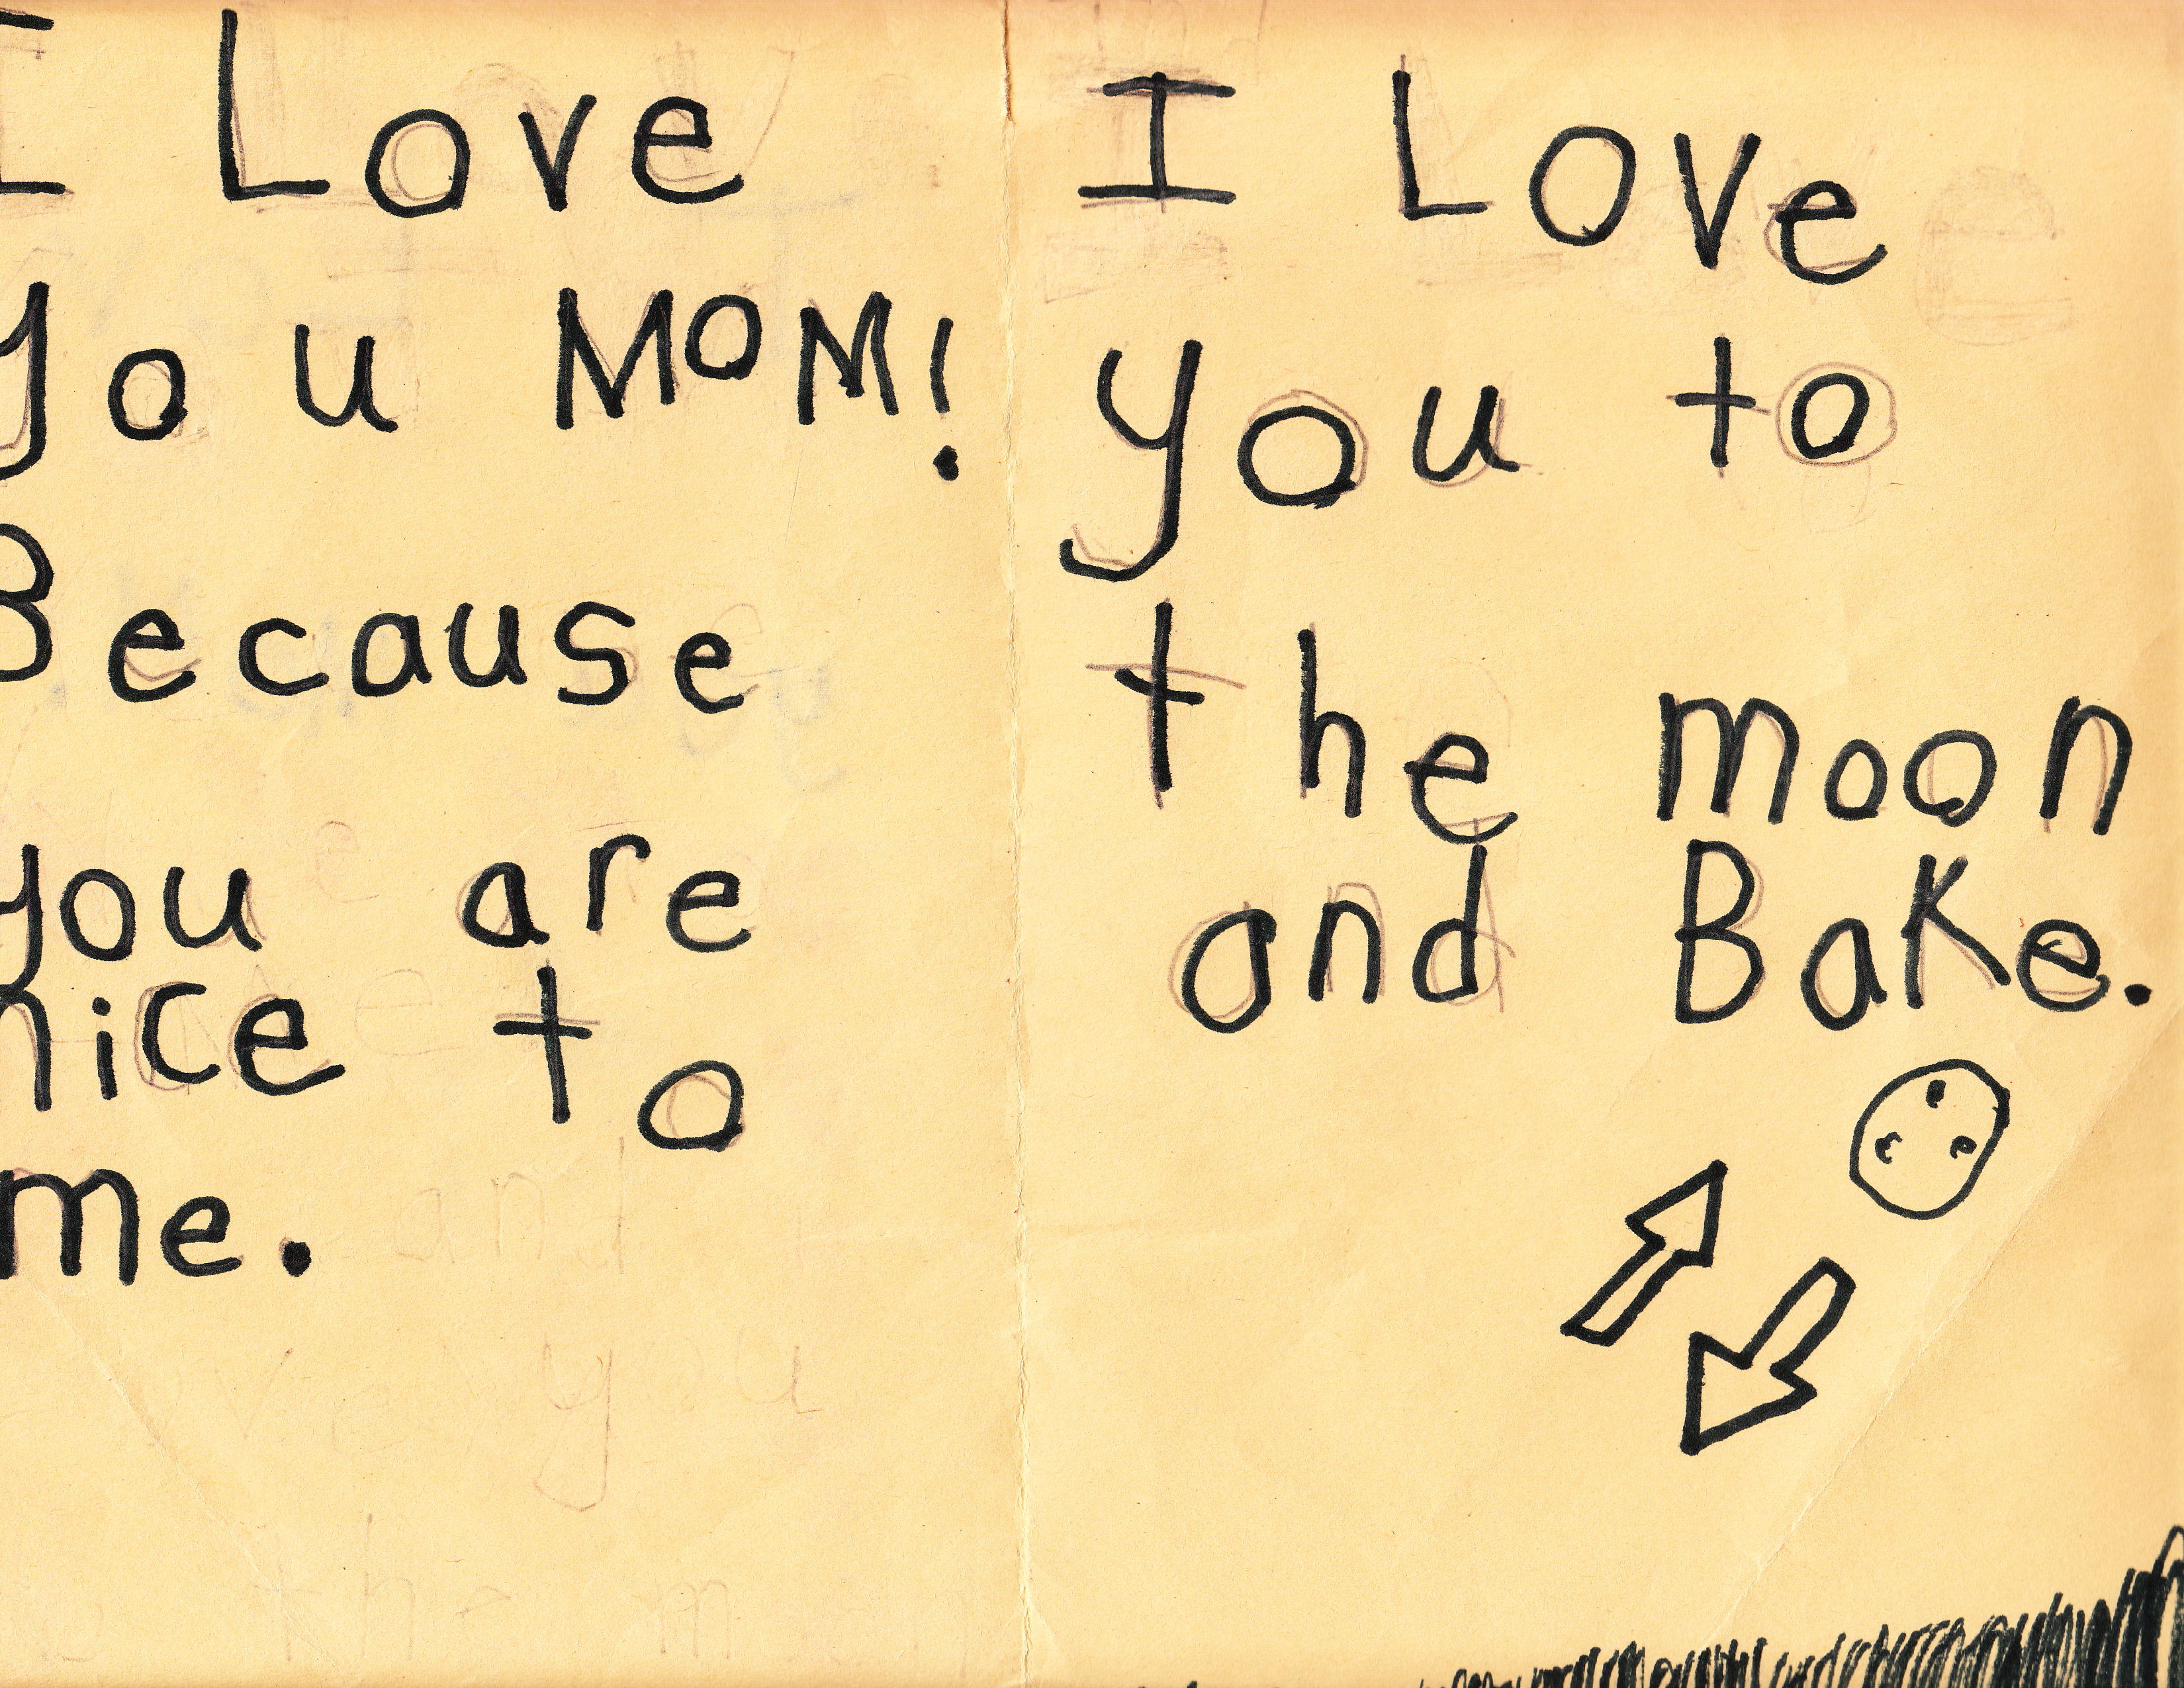 I Love
you MOM!
Because
you are
nice to
me.
I Love
you to
the moon
and Bake.